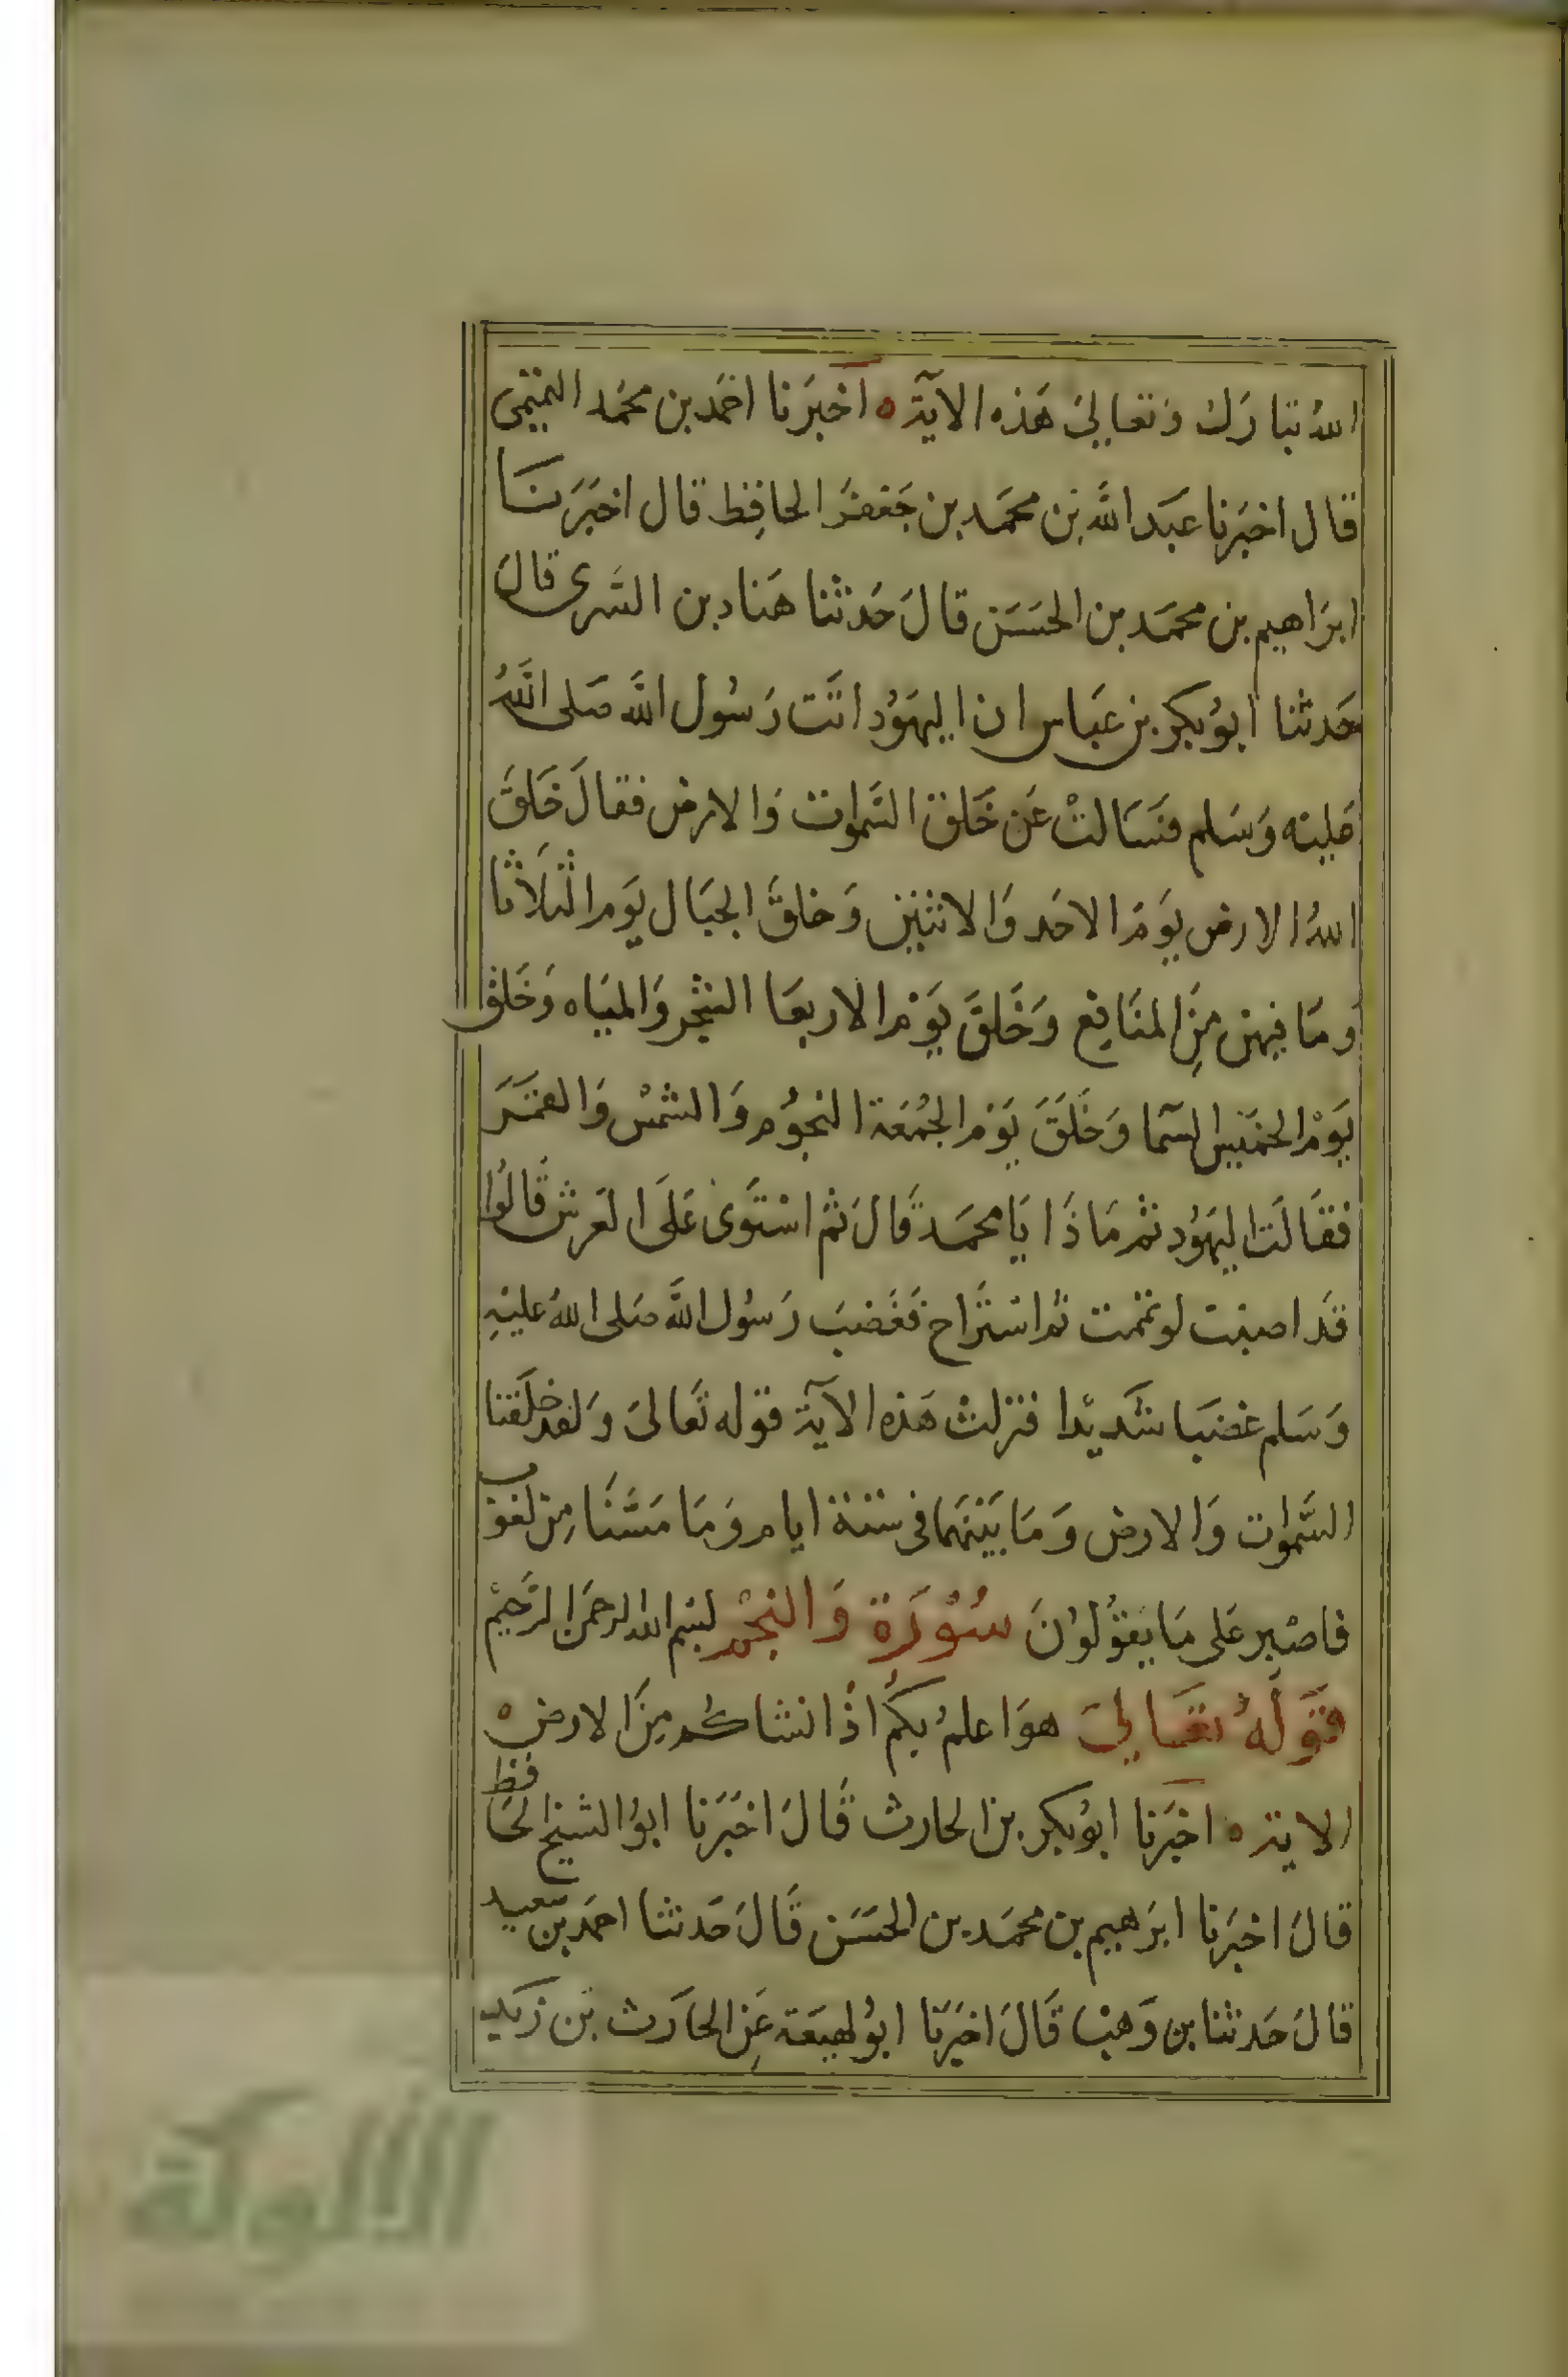 الله تبارك وتعالى هذه الآية ه اخبرنا احمد بن محمد التميمى
قال اخبرنا عبد الله بن محمد بن جعفر الحافظ قال اخبرنا
ابراهيم بن محمد بن الحسن قال حدثنا هناد بن السرى قال
حدثنا ابو بكر بن عباس ان اليهود اتت رسول الله صلى الله
عليه وسلم فسالت عن خلق السموات والارض فقال خلق
الله الارض يوم الاحد والاثنين وخلق الجبال يوم الثلاثا
وما فيهن من المنافع وخلق يوم الاربعا الشجر والمياه وخلق
يوم الخميس السما وخلق يوم الجمعة النجوم والشمس والقمر
فقالت اليهود ثم ماذا يا محمد قال ثم استوى على العرش قالوا
قد اصبت لو تممت ثم استراح فغضب رسول الله صلى الله عليه
وسلم غضبا شديدا فنزلت هذه الآية قوله تعالى ولقد خلقنا
السموات والارض وما بينهما فى ستة ايام وما مسنا من لغوب
فاصبر على ما يقولون سورة والنجم بسم الله الرحمن الرحيم
قوله تعالى هو اعلم بكم اذ انشاكم من الارض ه
الاية ه اخبرنا ابو بكر بن الحارث قال اخبرنا ابو الشيخ الحافظ
قال اخبرنا ابرهيم بن محمد بن الحسن قال حدثنا احمد بن سعيد
قال حدثنا بن وهب قال اخبرنا ابو لهيعة عن الحارث بن زيد
الألوكة